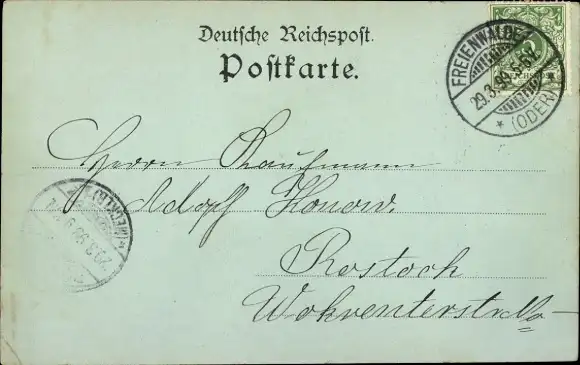 Deutsche Reichspost.
Postkarte.
FREIENWALDE
29.3.99. 6-7N.
* (ODER)
Herrn Kaufmann
Adolf Konow.
Rostock
Wokrenterstr.
(MECKLB)